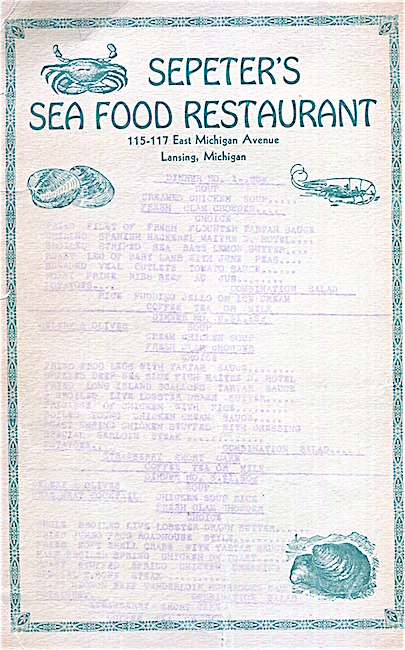 SEPETER'S
SEA FOOD RESTAURANT
115-117 East Michigan Avenue
Lansing, Michigan
DINNER NO. 1
SOUP
CREAMED CHICKEN SOUP....
FRESH CLAM CHOWDER....
CHOICE
FRIED FILET OF FRESH FLOUNDER TARTAR SAUCE
BROILED SPANISH MACKEREL MAITRE D. HOTEL....
BROILED STRIPED SEA BASS LEMON BUTTER...
ROAST LEG OF BABY LAMB WITH JUNE PEAS....
BREADED VEAL CUTLETS TOMATO SAUCE....
ROAST PRIME RIBS BEEF AU JUS
POTATOES.... COMBINATION SALAD
RICE PUDDING JELLO OR ICE CREAM
COFFEE TEA OR MILK
DINNER NO.
CELERY & OLIVES SOUP
CREAM CHICKEN SOUP
FRESH CLAM CHOWDER
CHOICE
FRIED FROG LEGS WITH TARTAR SAUCE
BROILED DEEP SEA FISH MAITRE D. HOTEL
FRIED LONG ISLAND SCALLOPS TARTAR SAUCE
BROILED LIVE LOBSTER DRAWN BUTTER
OF CHICKEN WITH RICE
BOILED YOUNG CHICKEN CREAM SAUCE
ROAST SPRING CHICKEN STUFFED WITH DRESSING
SPECIAL SARLOIN STEAK
COMBINATION SALAD....
STRAWBERRY SHORT CAKE
COFFEE TEA OR MILK
DINNER NO.
CELERY & OLIVES SOUP
CHICKEN SOUP RICE
FRESH CLAM CHOWDER
CHOICE
WHOLE BROILED LIVE LOBSTER DRAWN BUTTER
FRIED JUMBO FROG ROADHOUSE STYLE
FRIED SOFT SHELL CRABS WITH TARTAR SAUCE
BROILED SPRING CHICKEN
ROAST STUFFED SPRING CHICKEN DRESSING
STEAK
BEEF TENDERLOIN MUSHROOMS
COMBINATION SALAD
STRAWBERRY SHORT CAKE